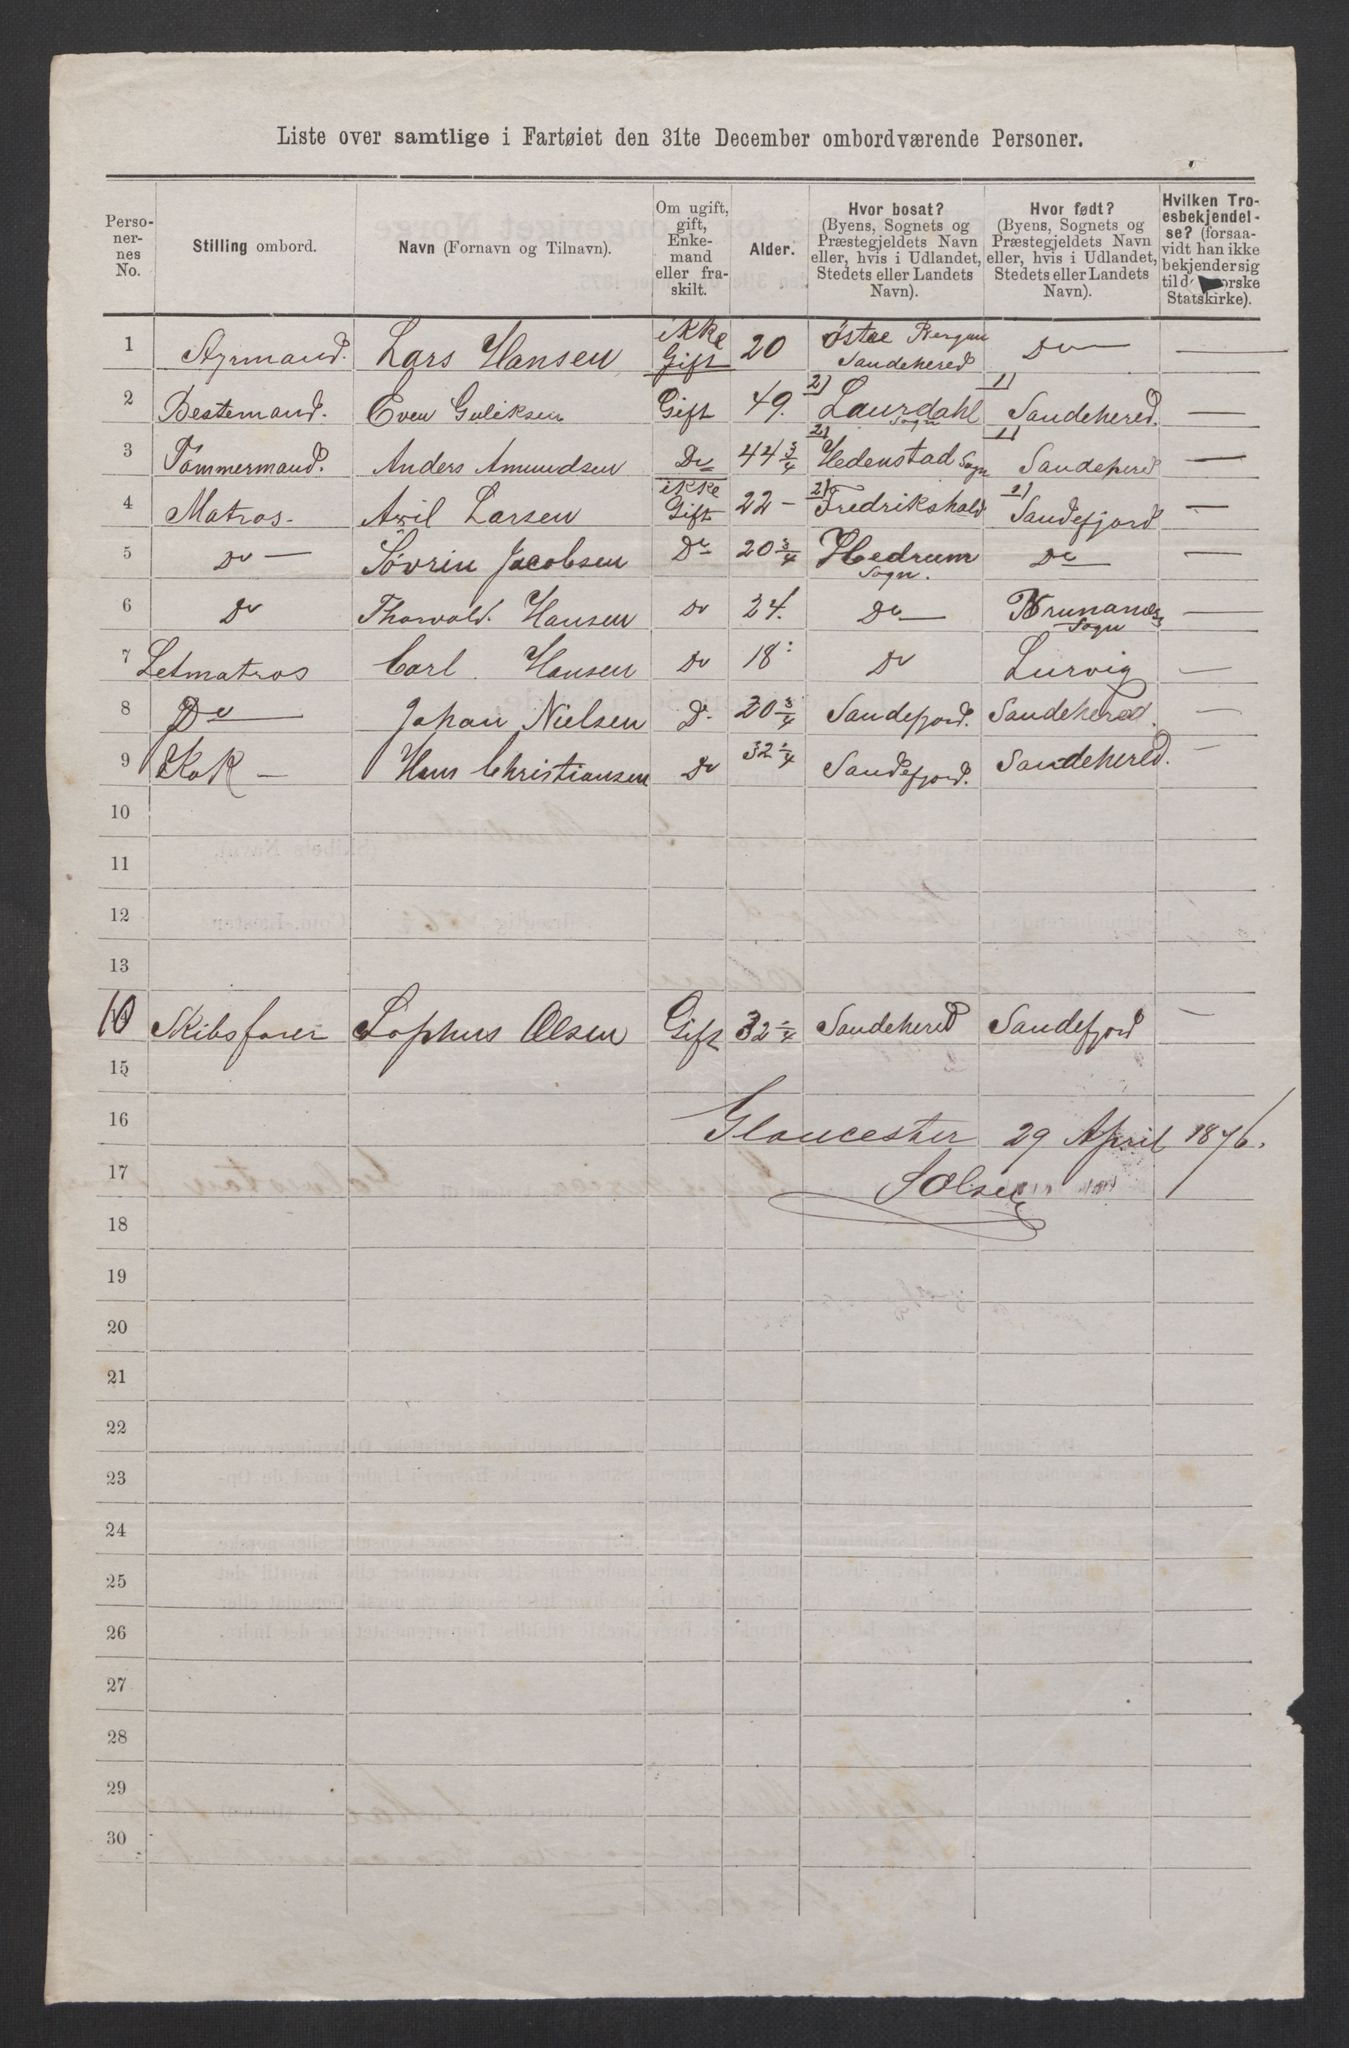 Liste over samtlige i Fartøiet den 31te December ombordværende Personer.
Personernes No. | Stilling ombord. | Navn (Fornavn og Tilnavn). | Om ugift, gift, Enkemand eller fraskilt. | Alder. | Hvor bosat? (Byens, Sognets og Præstegjeldets Navn eller, hvis i Udlandet, Stedets eller Landets Navn). | Hvor født? (Byens, Sognets og Præstegjeldets Navn eller, hvis i Udlandet, Stedets eller Landets Navn). | Hvilken Troesbekjendelse? (forsaavidt han ikke bekjender sig til norske Statskirke).
1 | Ayrmand. | Lars Hansen | ikke Gift | 20 | Østre Sandehered | Do — | —
2 | Bestemand. | Even Guliksen | Gift | 49. | 2) Laurdahl Sogn | 1) Sandehered. | —
3 | Tømmermand. | Anders Amundsen | Do | 44 3/4 | 2) Hedenstad Sogn | 1) Sandehered | —
4 | Matros- | Axil Larsen | ikke Gift | 22 - | 2) Fredrikshald | 2) Sandefjord | —
5 | Do — | Søvrin Jacobsen | Do | 20 3/4 | Hedrum Sogn. | Do | —
6 | Do | Thorvald. Hansen | Do | 24. | Do — | Brunanæs Sogn | —
7 | Letmatros | Carl. Hansen | Do | 18 | Do | Lurvig | —
8 | Do — | Johan Nielsen | D. | 20 3/4 | Sandefjord. | Sandehered. | —
9 | Kok — | Hans Christiansen | Do | 32 /4 | Sandefjord. | Sandehered. | —
10
11
12
13
10 | Skibsfører | Sophus Olsen | Gift | 32 /4 | Sandehered | Sandefjord | —
15
16
Gloucester 29 April 1876.
17
S Olsen
18
19
20
21
22
23
24
25
26
27
28
29
30